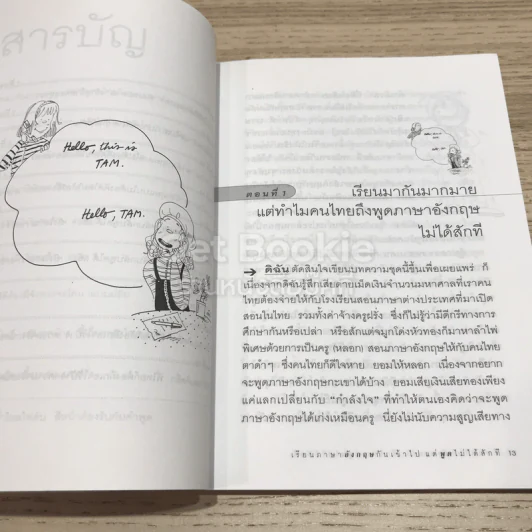 สารบัญ
Hello, this is
TAM.
Hello, TAM.
ตอนที่ 1
เรียนมากันมากมาย
แต่ทำไมคนไทยถึงพูดภาษาอังกฤษ
ไม่ได้สักที
Bookie
→ ดิฉัน ตัดสินใจเขียนบทความชุดนี้ขึ้นเพื่อเผยแพร่ ก็
เนื่องจากดิฉันรู้สึกเสียดายเม็ดเงินจำนวนมหาศาลที่เราคน
ไทยต้องจ่ายให้กับโรงเรียนสอนภาษาต่างประเทศที่มาเปิด
สอนในไทย รวมทั้งค่าจ้างครูฝรั่ง ซึ่งก็ไม่รู้ว่ามีดีกรีทางการ
ศึกษากันหรือเปล่า หรือสักแต่จมูกโด่งหัวทองก็มาหาลำไพ่
พิเศษด้วยการเป็นครู (หลอก) สอนภาษาอังกฤษให้กับคนไทย
ตาดำๆ ซึ่งคนไทยก็ดีใจหาย ยอมให้หลอก เนื่องจากอยาก
จะพูดภาษาอังกฤษกะเขาได้บ้าง ยอมเสียเงินเสียทองเพียง
แค่แลกเปลี่ยนกับ "กำลังใจ" ที่ทำให้ตนเองคิดว่าจะพูด
ภาษาอังกฤษได้เก่งเหมือนครู นี่ยังไม่นับความสูญเสียทาง
เรียนภาษาอังกฤษกันเข้าไป แต่พูดไม่ได้สักที 13